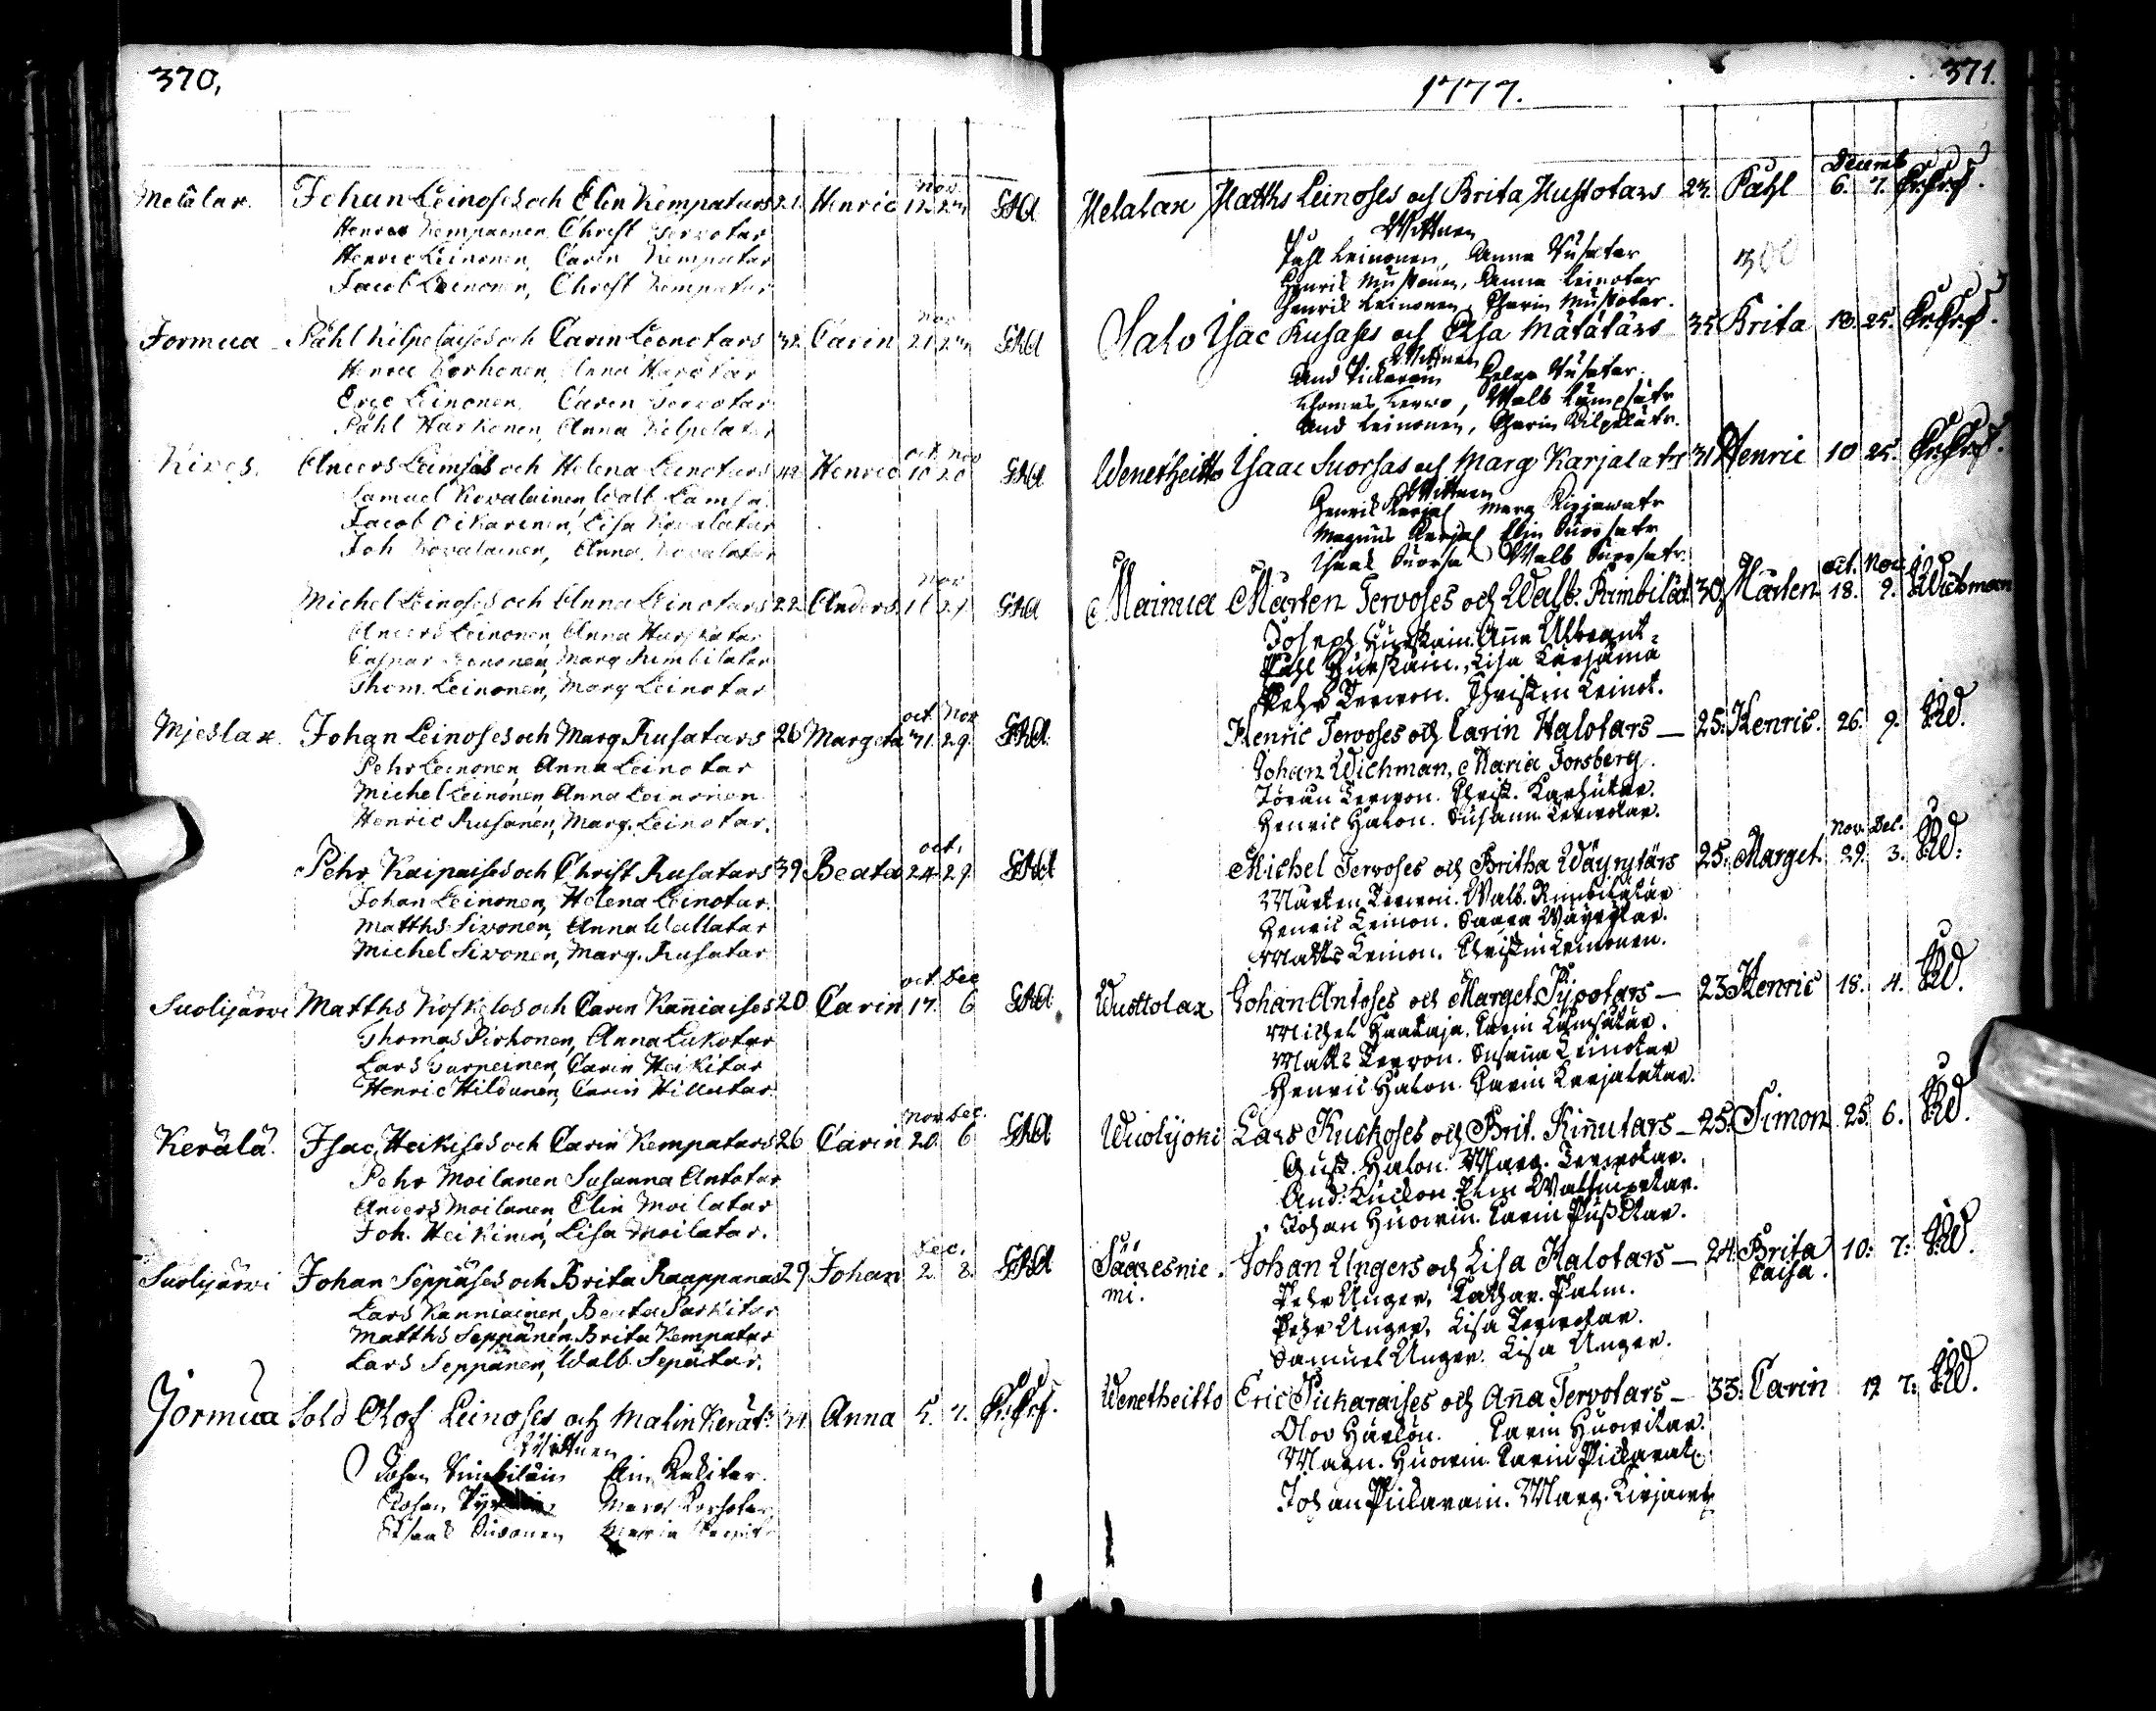 370,
Melalax. Johan Leinoses och Elin Kempatars 21. Henric 12. 23 GHA
nov.
Henric Kempainen Christ Servotar
Henric Leinonen, Carin Kempatar
Jacob Leinonen, Christ Kempatar
nov
Jormua Påhl Kilpelaises och Carin Leinotars 32. Carin 21 23 GHA
Henric Korhonen, Anna Harotar
Eric Leinonen, Carin Servotar
Påhl Harkonen, Anna Kilpelatar
oct. nov
Kives. Anders Lamsas och Helena Leinotars 42 Henric 10 20 GHA
Samuel Kovalainen, Walb Lamsa.
Jacob Oikarinen, Lisa Kovalatar
Joh Kovalainen, Anna Kovalatar
nov
Michel Leinoses och Anna Leinotars 22. Anders. GHA
Anders Leinonen, Anna
Caspar Leinonen, Marg Rimbilatar
Thom. Leinonen, Marg Leinotar
oct. Nov
Mjeslax. Johan Leinoses och Marg. Rusatars 26 Margeta 31. 29. GHA
Pehr Leinonen, Anna Leinotar
Michel Leinonen, Anna Leinonen
Henric Rusanen, Marg. Leinotar.
oct.
Pehr Kaipaises och Christ Rusatars 39 Beata 24 29. GHA
Johan Leinonen, Helena Leinotar.
Matths Sivonen, Anna Wallatar
Michel Sivonen, Marg. Rusatar
oct. Dec
Suolijärvi Matths Koskelos och Caren Kanniaises 20 Carin 17. 6 GHA
Thomas Pirhonen, Anna Lukotar
Lars Turpeinen, Carin Heikitar
Henric Hildunen, Carin Hillutar.
nov Dec.
Kerälä. Isac Heikises och Carin Kempatars 26 Carin 20. 6 GHA
Pehr Moilanen Susanna Antotar
Anders Moilanen, Elin Moilatar
Joh. Heikinen, Lisa Moilatar.
Dec.
Suolijärvi Johan Seppäses och Brita Raappanas 29 Johan 2. 8. GHA
Lars Kanniainen, Beata Parkitar
Matths Seppänen, Brita Kempatar
Lars Seppänen, Walb. Sepätar.
Jormua Sold Olof Leinoses och Malin Kerät: 31. Anna 5. 7.
Wittnen
Johan Rimbiläin Elin
Johan Marg Korhotar
Isaac Sivonen Maria
1777.
371.
Decemb
Melalax Matths Leinoses och Brita Mustotars 23. Pähl 6. 7.
Wittnen
Pahl Leinonen, Anna Rusatar
Henrik Mustonen, Anna Leinotar
Henrik Leinonen, Charin Mustotar.
Salo Isac Rusases och Elsa Mätätärs 35. Brita 13. 25.
Wittnen
And Pickarain Helga Rusatar.
Thomas Tervo, Walb Kämpsätr
And Leinonen, Charin Kilpelätr.
Wenetheitto Isaac Suorsas och Marg Karjalatr 31 Henric 10 25.
Wittnen
Henrik Karjal Marg Kirjawatr
Magnus Karjal Elin Suorsatr
Isaak Suorsa Walb Suorsatr.
oct. Nov.
Mainua Mårten Tervoses och Walb. Rimbilät 30. Mårten 18. 9. JWichman
Joseph Hurskain. Anna Ulbrant=
Påhl Hurskain., Lisa Kärsämä
Pehr Terwon. Christin Leinot.
Henric Tervoses och Carin Halotars — 25. Henric. 26. 9. JWd.
Johan Wichman, Maria Forsberg.
Göran Terwon. Christ. Karhutar.
Henric Halon. Susann. Terwotar.
Nov. Dec.
Michel Tervoses och Britha Wäyrytärs 25. Marget. 29. 3. JWd.
Mårten Terwon. Walb. Rimbilätär
Henric Leinon. Saara Wäyrytär.
Matts Leinon. Christin Leinonen.
Wuottolax Johan Antoses och Marget Pyootars — 23 Henric 18. 4. JWd.
Michel Haataja. Karin Kämsätär.
Matts Terwon. Susanna Leinotar
Henric Halon. Karin Karjalatar.
Wuolijoki Lars Kuckoses och Brit. Kinnutars — 25. Simon 25. 6. JWd.
Gust. Halon. Marg. Terwotar.
And. Kuckon. Elin
Johan Huowin. Karin
Sääresnie. Johan Ungers och Lisa Halotars — 24. Brita 10. 7. JWd.
mi. Caisa.
Pehr Unger, Cathar. Palm.
Pehr Unger, Lisa Terwotar.
Samuel Unger. Lisa Unger.
Wenetheitto Eric Pickaraises och Anna Tervotars — 33. Carin 12 7. JWd.
Olov Härkön. Karin Huowitar.
Magn. Huowin. Karin Pickarat.
Johan Pickarain. Marg. Kirjawat.